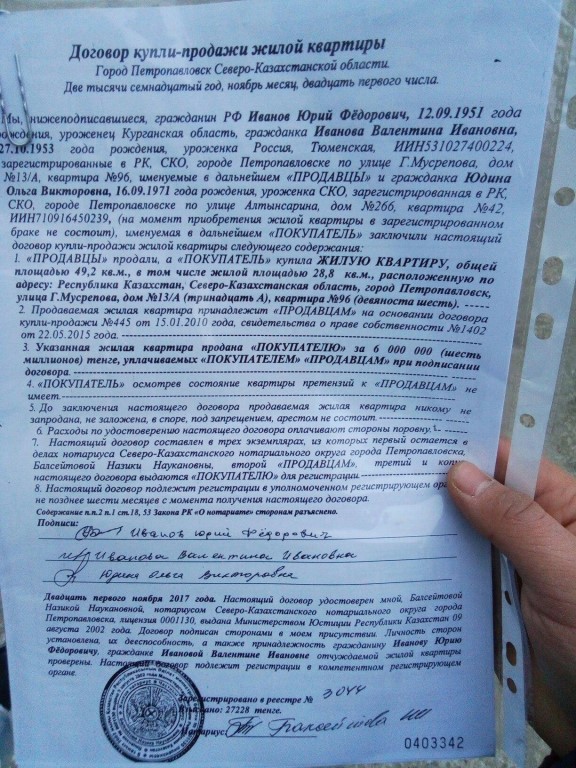 Договор купли-продажи жилой квартиры
Город Петропавловск Северо-Казахстанской области.
Две тысячи семнадцатый год, ноябрь месяц, двадцать первого числа.
Мы, нижеподписавшиеся, гражданин РФ Иванов Юрий Фёдорович, 12.09.1951 года
рождения, уроженец Курганская область, гражданка Иванова Валентина Ивановна,
27.10.1953 года рождения, уроженка Россия, Тюменская, ИИН531027400224,
зарегистрированные в РК, СКО, городе Петропавловске по улице Г.Мусрепова, дом
№13/А, квартира №96, именуемые в дальнейшем «ПРОДАВЦЫ» и гражданка Юдина
Ольга Викторовна, 16.09.1971 года рождения, уроженка СКО, зарегистрированная в РК,
СКО, городе Петропавловске по улице Алтынсарина, дом №266, квартира №42,
ИИН710916450239, (на момент приобретения жилой квартиры в зарегистрированном
браке не состоит), именуемая в дальнейшем «ПОКУПАТЕЛЬ» заключили настоящий
договор купли-продажи жилой квартиры следующего содержания:
1. «ПРОДАВЦЫ» продали, а «ПОКУПАТЕЛЬ» купила ЖИЛУЮ КВАРТИРУ, общей
площадью 49,2 кв.м., в том числе жилой площадью 28,8 кв.м., расположенную по
адресу: Республика Казахстан, Северо-Казахстанская область, город Петропавловск,
улица Г.Мусрепова, дом №13/А (тринадцать А), квартира №96 (девяноста шесть). -----
2. Продаваемая жилая квартира принадлежит «ПРОДАВЦАМ» на основании договора
купли-продажи №445 от 15.01.2010 года, свидетельства о праве собственности №1402
от 22.05.2015 года.
3. Указанная жилая квартира продана «ПОКУПАТЕЛЮ» за 6 000 000 (шесть
миллионов) тенге, уплачиваемых «ПОКУПАТЕЛЕМ» «ПРОДАВЦАМ» при подписании
договора.
4. «ПОКУПАТЕЛЬ» осмотрев состояние квартиры претензий к «ПРОДАВЦАМ» не
имеет.
5. До заключения настоящего договора продаваемая жилая квартира никому не
запродана, не заложена, в споре, под запрещением, арестом не состоит.
6. Расходы по удостоверению настоящего договора оплачивают стороны поровну.
7. Настоящий договор составлен в трех экземплярах, из которых первый остается в
делах нотариуса Северо-Казахстанского нотариального округа города Петропавловска,
Балсейтовой Назики Наукановны, второй «ПРОДАВЦАМ», третий и копия
настоящего договора выдаются «ПОКУПАТЕЛЮ» для регистрации.
8. Настоящий договор подлежит регистрации в уполномоченном регистрирующем органе
не позднее шести месяцев с момента получения настоящего договора.
Содержание п.п.2 п.1 ст.18, 53 Закона РК «О нотариате» сторонам разъяснено.
Подписи:
Иванов Юрий Фёдорович
Иванова Валентина Ивановна
Юдина Ольга Викторовна
Двадцать первого ноября 2017 года. Настоящий договор удостоверен мной, Балсейтовой
Назикой Наукановной, нотариусом Северо-Казахстанского нотариального округа города
Петропавловска, лицензия 0001130, выдана Министерством Юстиции Республики Казахстан 09
августа 2002 года. Договор подписан сторонами в моем присутствии. Личность сторон
установлена, их дееспособность, а также принадлежность гражданину Иванову Юрию
Фёдоровичу, гражданке Ивановой Валентине Ивановне отчуждаемой жилой квартиры
проверены. Настоящий договор подлежит регистрации в компетентном регистрирующем
органе.
Зарегистрировано в реестре № 3044
Взыскано: 27228 тенге.
Нотариус: Балсейтова
0403342